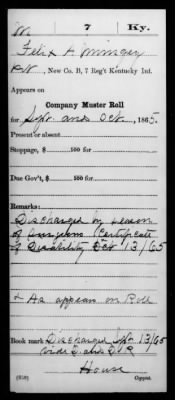 M 7 Ky.
Felix A. Mingey
Pvt, New Co. B, 7 Reg't Kentucky Inf.
Appears on
Company Muster Roll
for Sept and Oct, 1865.
Present or absent
Stoppage, $ 100 for
Due Gov't, $ 100 for
Remarks:
Discharged by reason
of Surgeons Certificate
of Disability Oct 13/65
+ As appears on Roll
Book mark Discharged 13/65
House
(858) Copyist.